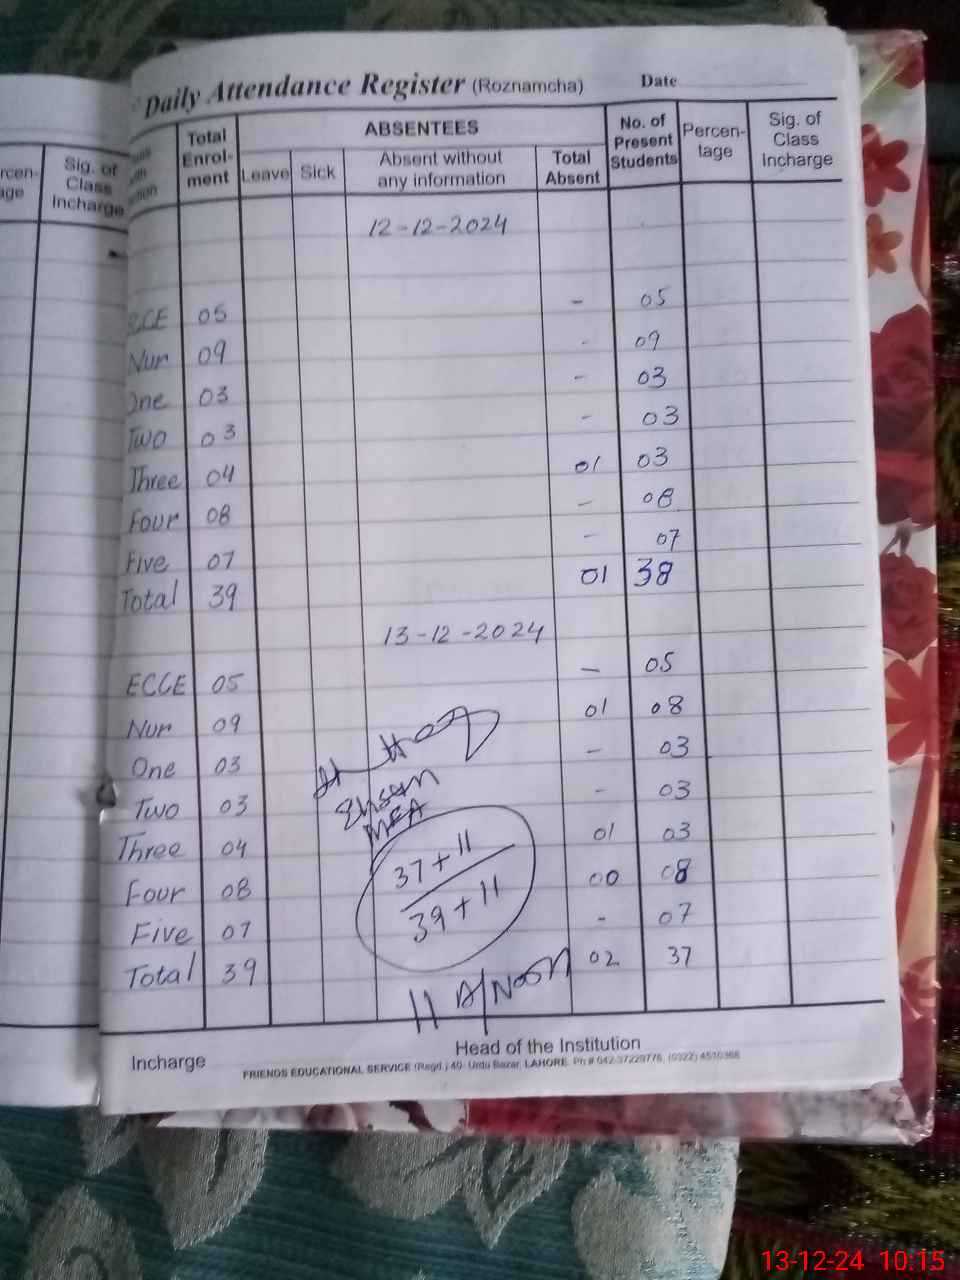 Daily Attendance Register (Roznamcha) Date
Total Enrol-ment
ABSENTEES
Leave Sick Absent without any information Total Absent
No. of Present Students
Percen-tage
Sig. of Class Incharge
rcen-
age
Sig. of Class Incharge
12-12-2024
ECCE 05 - 05
Nur 09 - 09
One 03 - 03
Two 03 - 03
Three 04 01 03
Four 08 - 08
Five 07 - 07
Total 39 01 38
13-12-2024
ECCE 05 - 05
Nur 09 01 08
One 03 - 03
Two 03 - 03
MEA
Three 04 01 03
37+11
39+11
Four 08 00 08
Five 07 - 07
Total 39 02 37
11 A/Noon
Incharge Head of the Institution
FRIENDS EDUCATIONAL SERVICE (Regd.) 40- Urdu Bazar, LAHORE. Ph # 042-37229776, (0322) 4510368
13-12-24 10:15